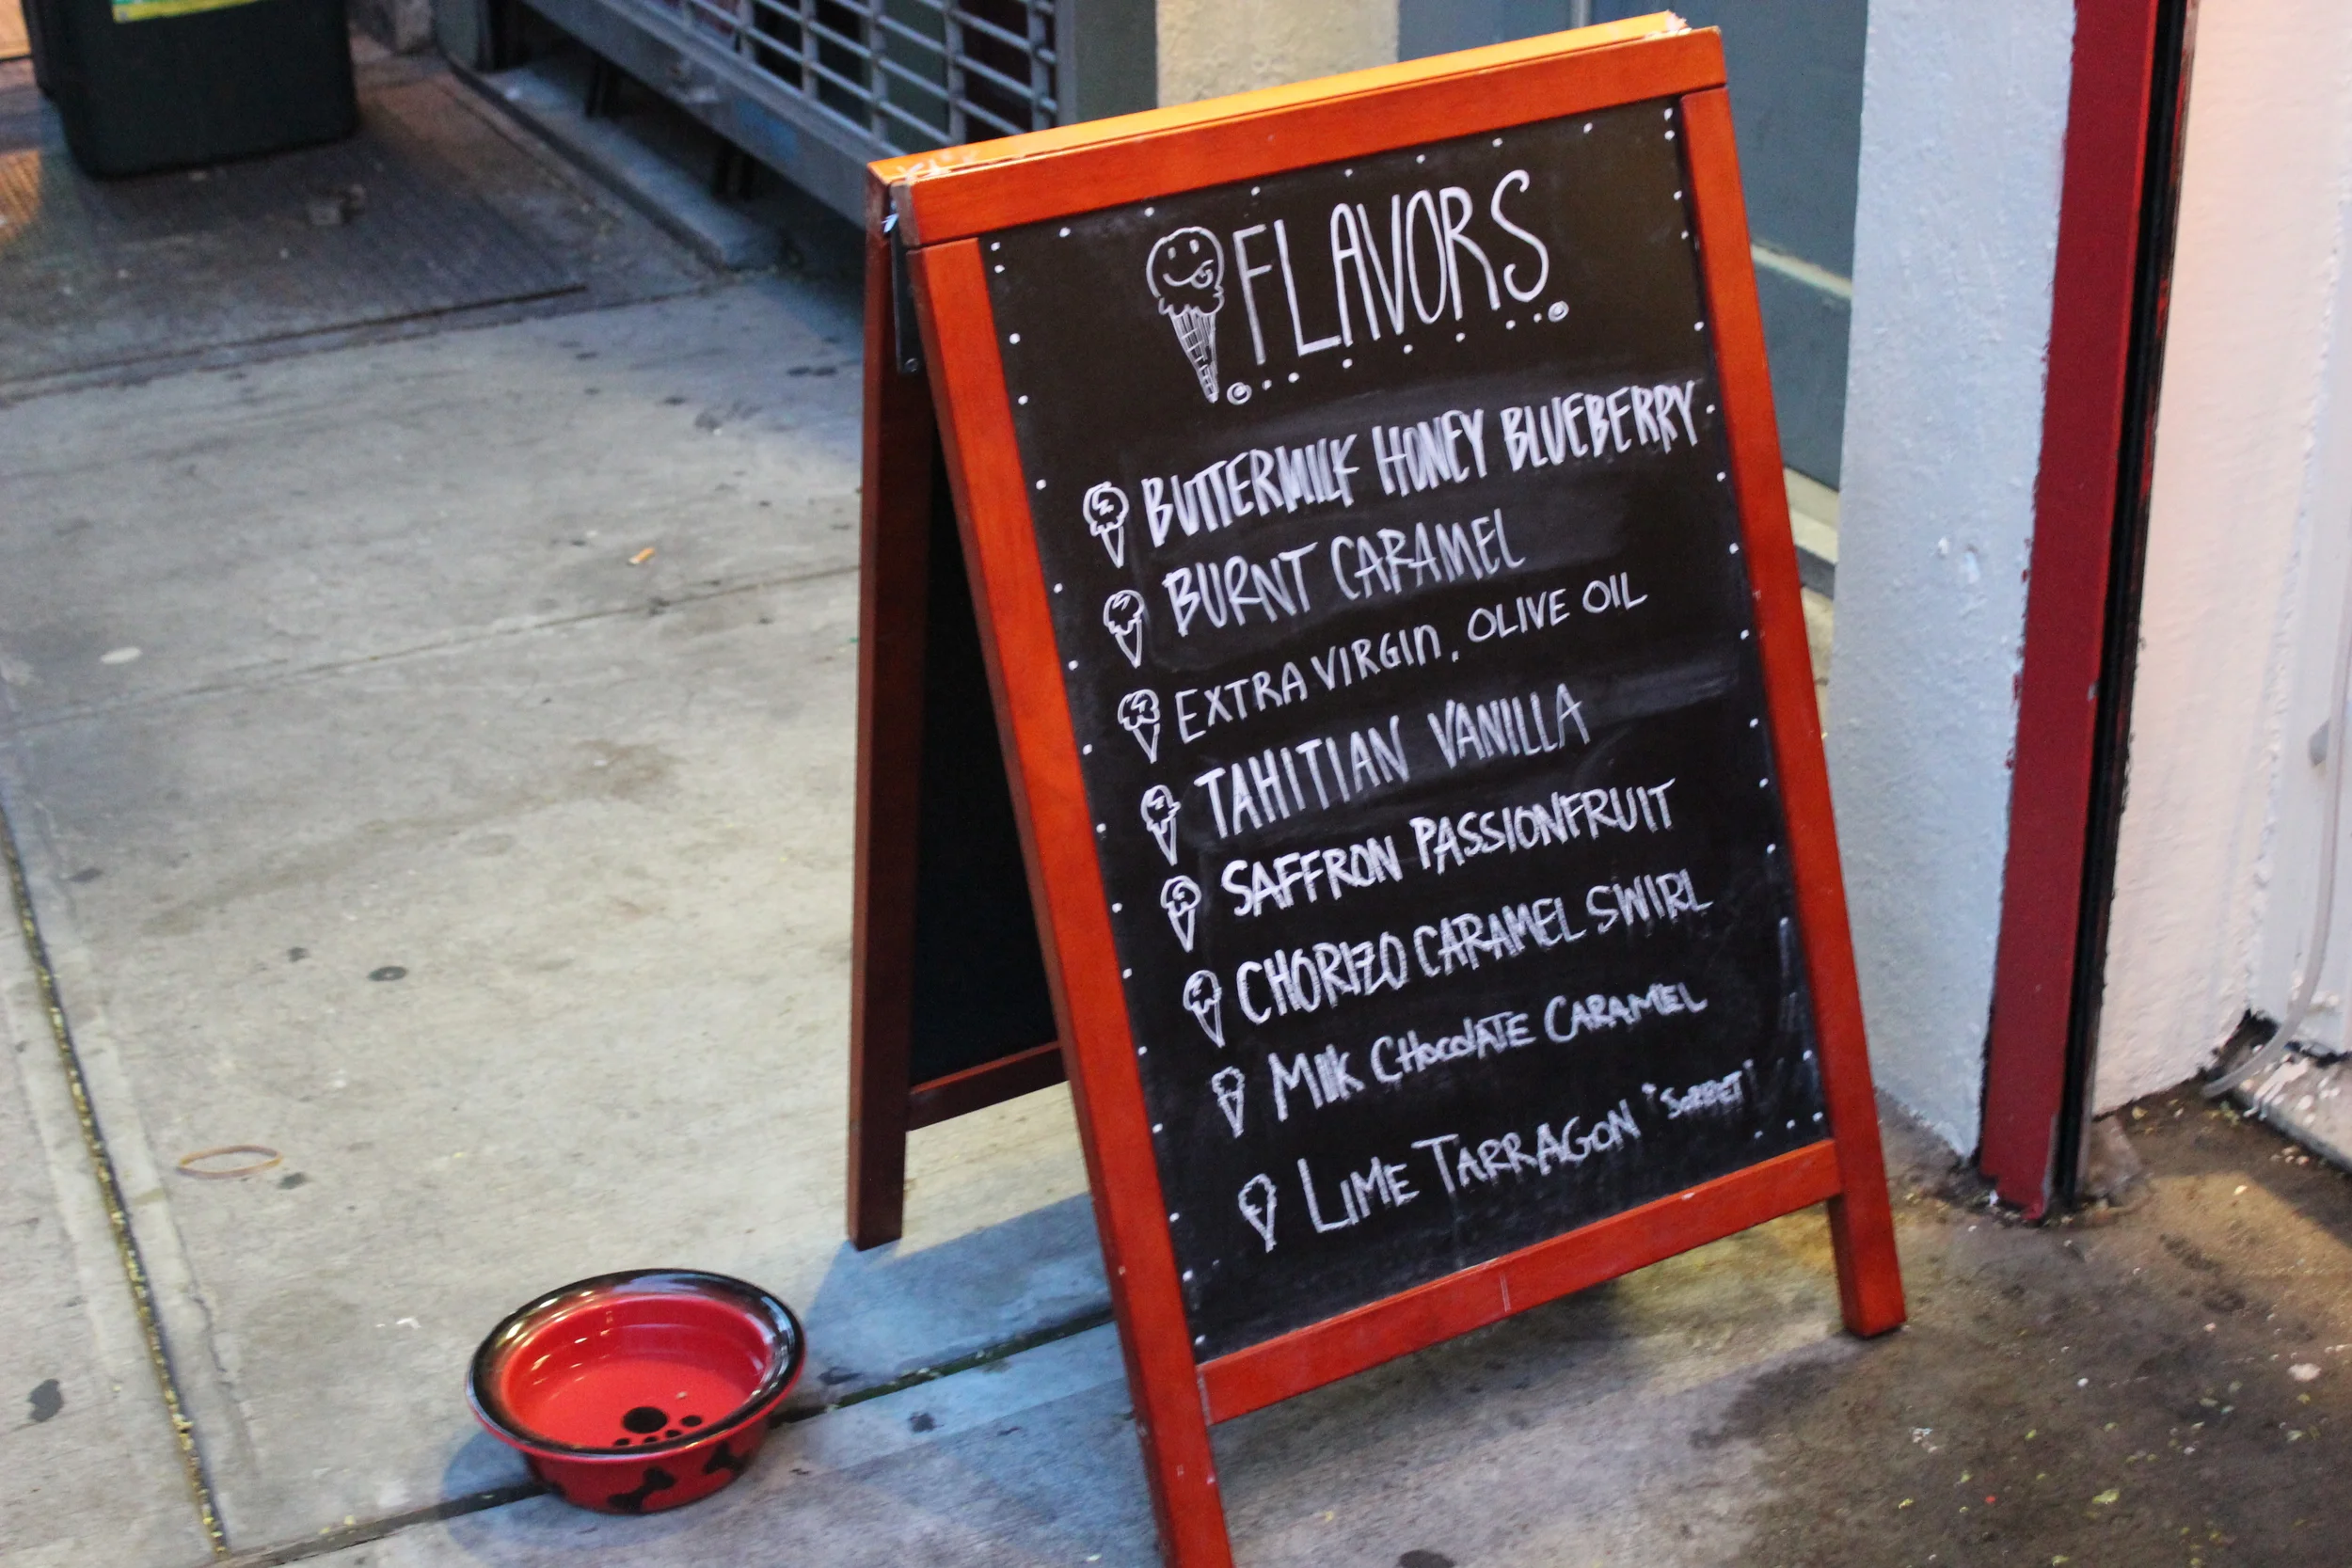 FLAVORS
BUTTERMILK HONEY BLUEBERRY
BURNT CARAMEL
EXTRA VIRGIN. OLIVE OIL
TAHITIAN VANILLA
SAFFRON PASSIONFRUIT
CHORIZO CARAMEL SWIRL
MilK CHocolATE CARAMEL
LIME TARRAGON "SORBET"